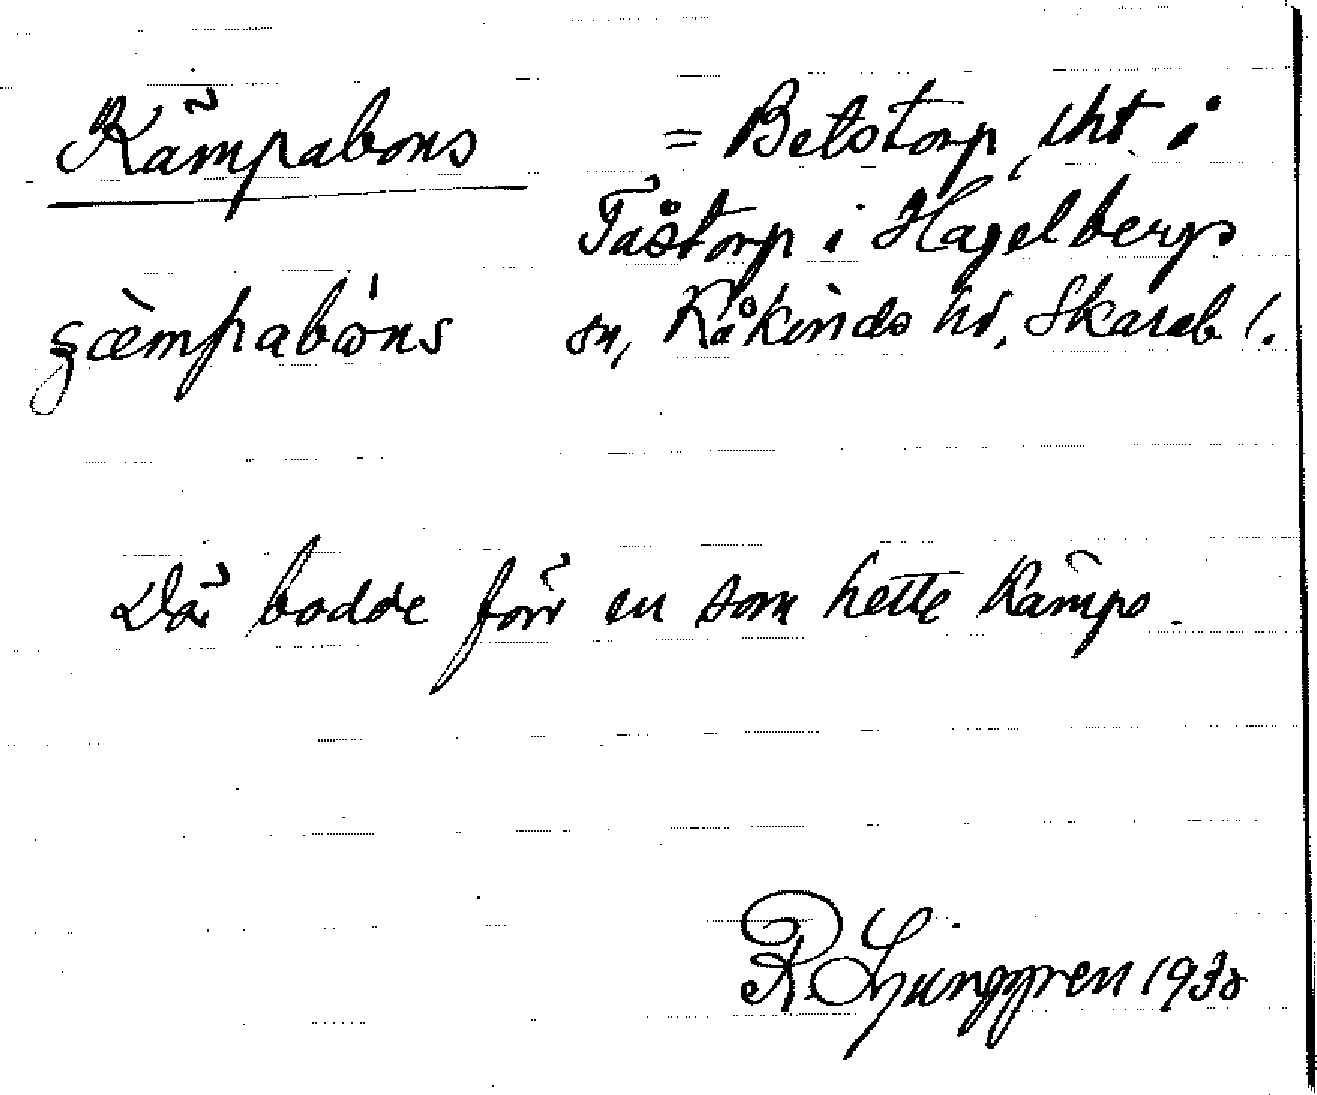 Kämpabons = Betstorp, lht. i
Tåstorp i Hagelbergs
sn, Kåkinds hd, Skarab. l.
Där bodde förr en som hette Kämpe.
R. Ljunggren 1938